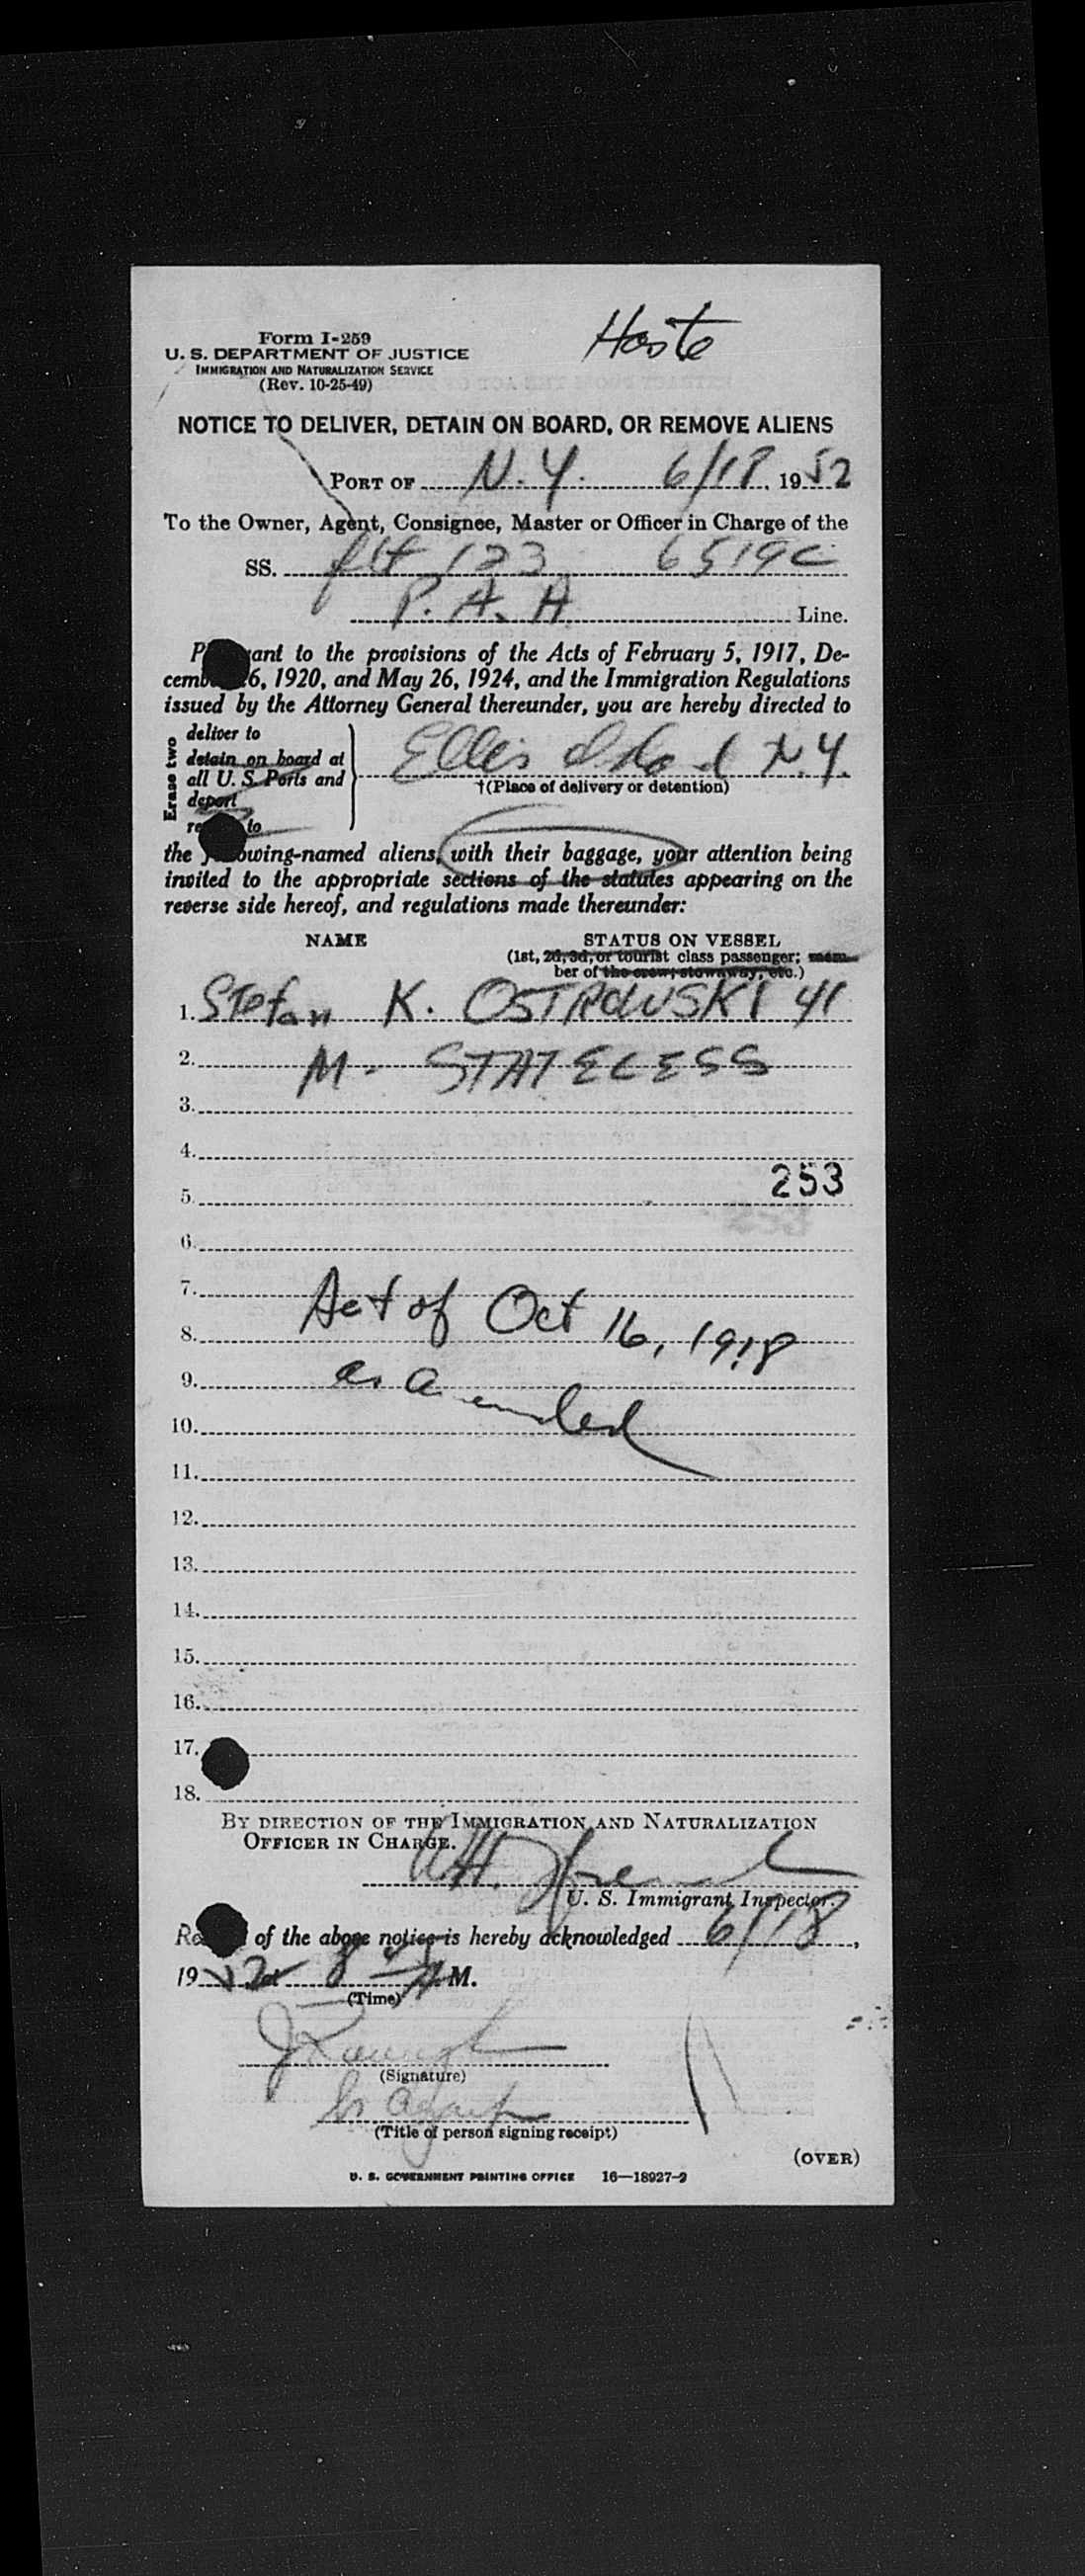 Form I-259
Haste
U. S. DEPARTMENT OF JUSTICE
IMMIGRATION AND NATURALIZATION SERVICE
(Rev. 10-25-49)
NOTICE TO DELIVER, DETAIN ON BOARD, OR REMOVE ALIENS
PORT OF N.Y. 6/18, 1952
To the Owner, Agent, Consignee, Master or Officer in Charge of the
SS. flt 123 6519C
P. A. A Line.
ant to the provisions of the Acts of February 5, 1917, De-
cemb 6, 1920, and May 26, 1924, and the Immigration Regulations
issued by the Attorney General thereunder, you are hereby directed to
Erase two
deliver to
detain on board at
all U. S. Ports and
deport
re to
Ellis Island N.Y.
†(Place of delivery or detention)
the owing-named aliens, with their baggage, your attention being
invited to the appropriate sections of the statutes appearing on the
reverse side hereof, and regulations made thereunder:
NAME STATUS ON VESSEL
(1st, 2d, 3d, or tourist class passenger; mem-
ber of the crew; stowaway, etc.)
1. Stefan K. OSTROWSKI 41
2. M - STATELESS
3.
4.
5. 253
6.
7.
8. Act of Oct 16, 1918
9. as amended
10.
11.
12.
13.
14.
15.
16.
17.
18.
BY DIRECTION OF THE IMMIGRATION AND NATURALIZATION
OFFICER IN CHARGE.
U. S. Immigrant Inspector.
Re of the above notice is hereby acknowledged 6/18,
1952 at 8 A M.
(Time)
(Signature)
(Title of person signing receipt)
(OVER)
U. S. GOVERNMENT PRINTING OFFICE 16—18927-2